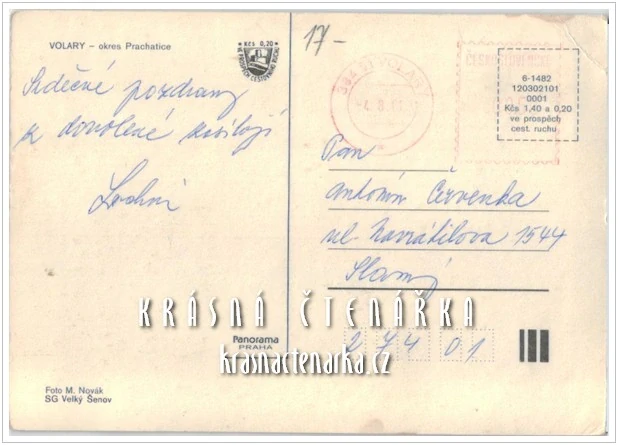 VOLARY – okres Prachatice
Kčs 0,20
VE PROSPĚCH CESTOVNÍHO RUCHU
17-
384 51 VOLARY
6-1482
120302101
0001
Kčs 1,40 a 0,20
ve prospěch
cest. ruchu
Srdečné pozdravy
z dovolené zasílají
Pan
Antonín Červenka
ul. Navrátilova 1544
Slaný
274 01
KRÁSNÁ ČTENÁŘKA
krasnactenarka.cz
Panorama
PRAHA
Foto M. Novák
SG Velký Šenov